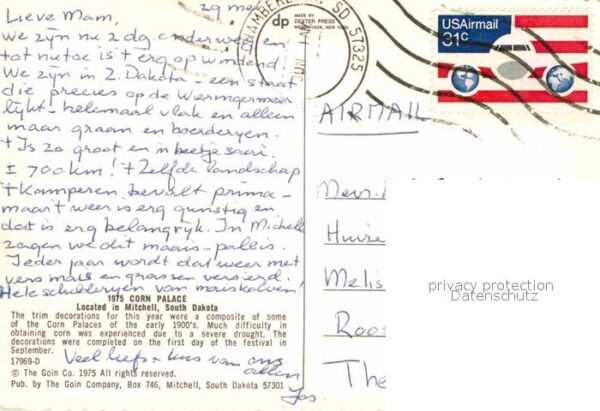 29 mei
Lieve Mam,
We zijn nu 2 dg. onderweg en
tot nu toe is 't erg opwindend.
We zijn in Z. Dakota - een staat
die precies op de Wieringermeer
lijkt - helemaal vlak en alleen
maar graan en boerderijen.
't Is zo groot en 'n beetje saai.
± 700 km! 't Zelfde landschap
't Kamperen bevalt prima -
maar 't weer is erg gunstig en
dat is erg belangrijk. In Mitchell
zagen we dit maais-paleis.
Ieder jaar wordt dat weer met
vers mais en grassen versierd.
Hele schilderijen van maiskolven!
1975 CORN PALACE
Located in Mitchell, South Dakota
The trim decorations for this year were a composite of some
of the Corn Palaces of the early 1900's. Much difficulty in
obtaining corn was experienced due to a severe drought. The
decorations were completed on the first day of the festival in
September.
17969-D
Veel liefs + kus van ons
allen
Jos.
© The Goin Co. 1975 All rights reserved.
Pub. by The Goin Company, Box 746, Mitchell, South Dakota 57301
dp
MADE BY
DEXTER PRESS
WEST NYACK, NEW YORK
SD 57325
JUN
USAirmail
31c
AIRMAIL
Mevr.
Huize
Melis
Roos
The
privacy protection
Datenschutz